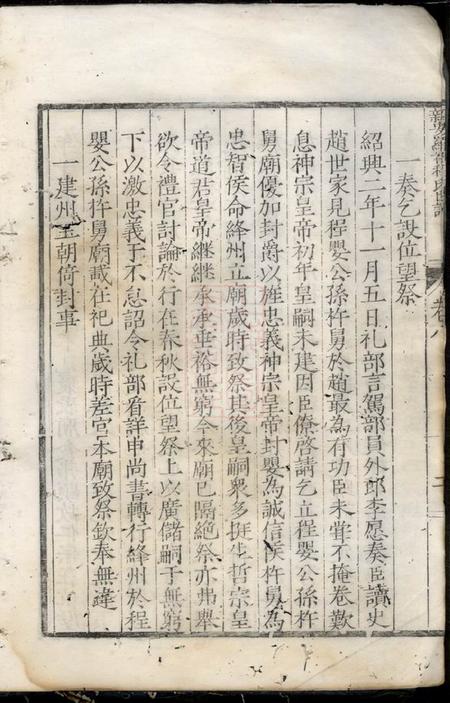 一奏乞設位望祭
紹興二年十一月五日禮部言駕部員外郎李愿奏臣讀史
趙世家見程嬰公孫杵臼於趙最為有功臣未甞不掩卷歎
息神宗皇帝初年皇嗣未建因臣僚啓請乞立程嬰公孫杵
臼廟優加封爵以旌忠義神宗皇帝封嬰為誠信侯杵臼為
忠智侯命絳州立廟歲時致祭其後皇嗣衆多挺生哲宗皇
帝道君皇帝繼繼承承垂裕無窮今來廟已隔絶祭亦弗舉
欲令禮官討論於行在春秋設位望祭上以廣儲嗣于無窮
下以激忠義于不怠詔令礼部看詳申尚書轉行絳州於程
嬰公孫杵臼廟載在祀典歲時差官本廟致祭欽奉無違
一建州王朝倚封事
卷八
二